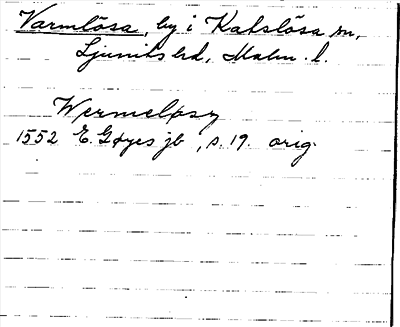 Varmlösa, by i Katslösa sn,
Ljunits hd, Malm. l.
Wermeløsz
1552 E. Gøyes jb, s. 19. orig.